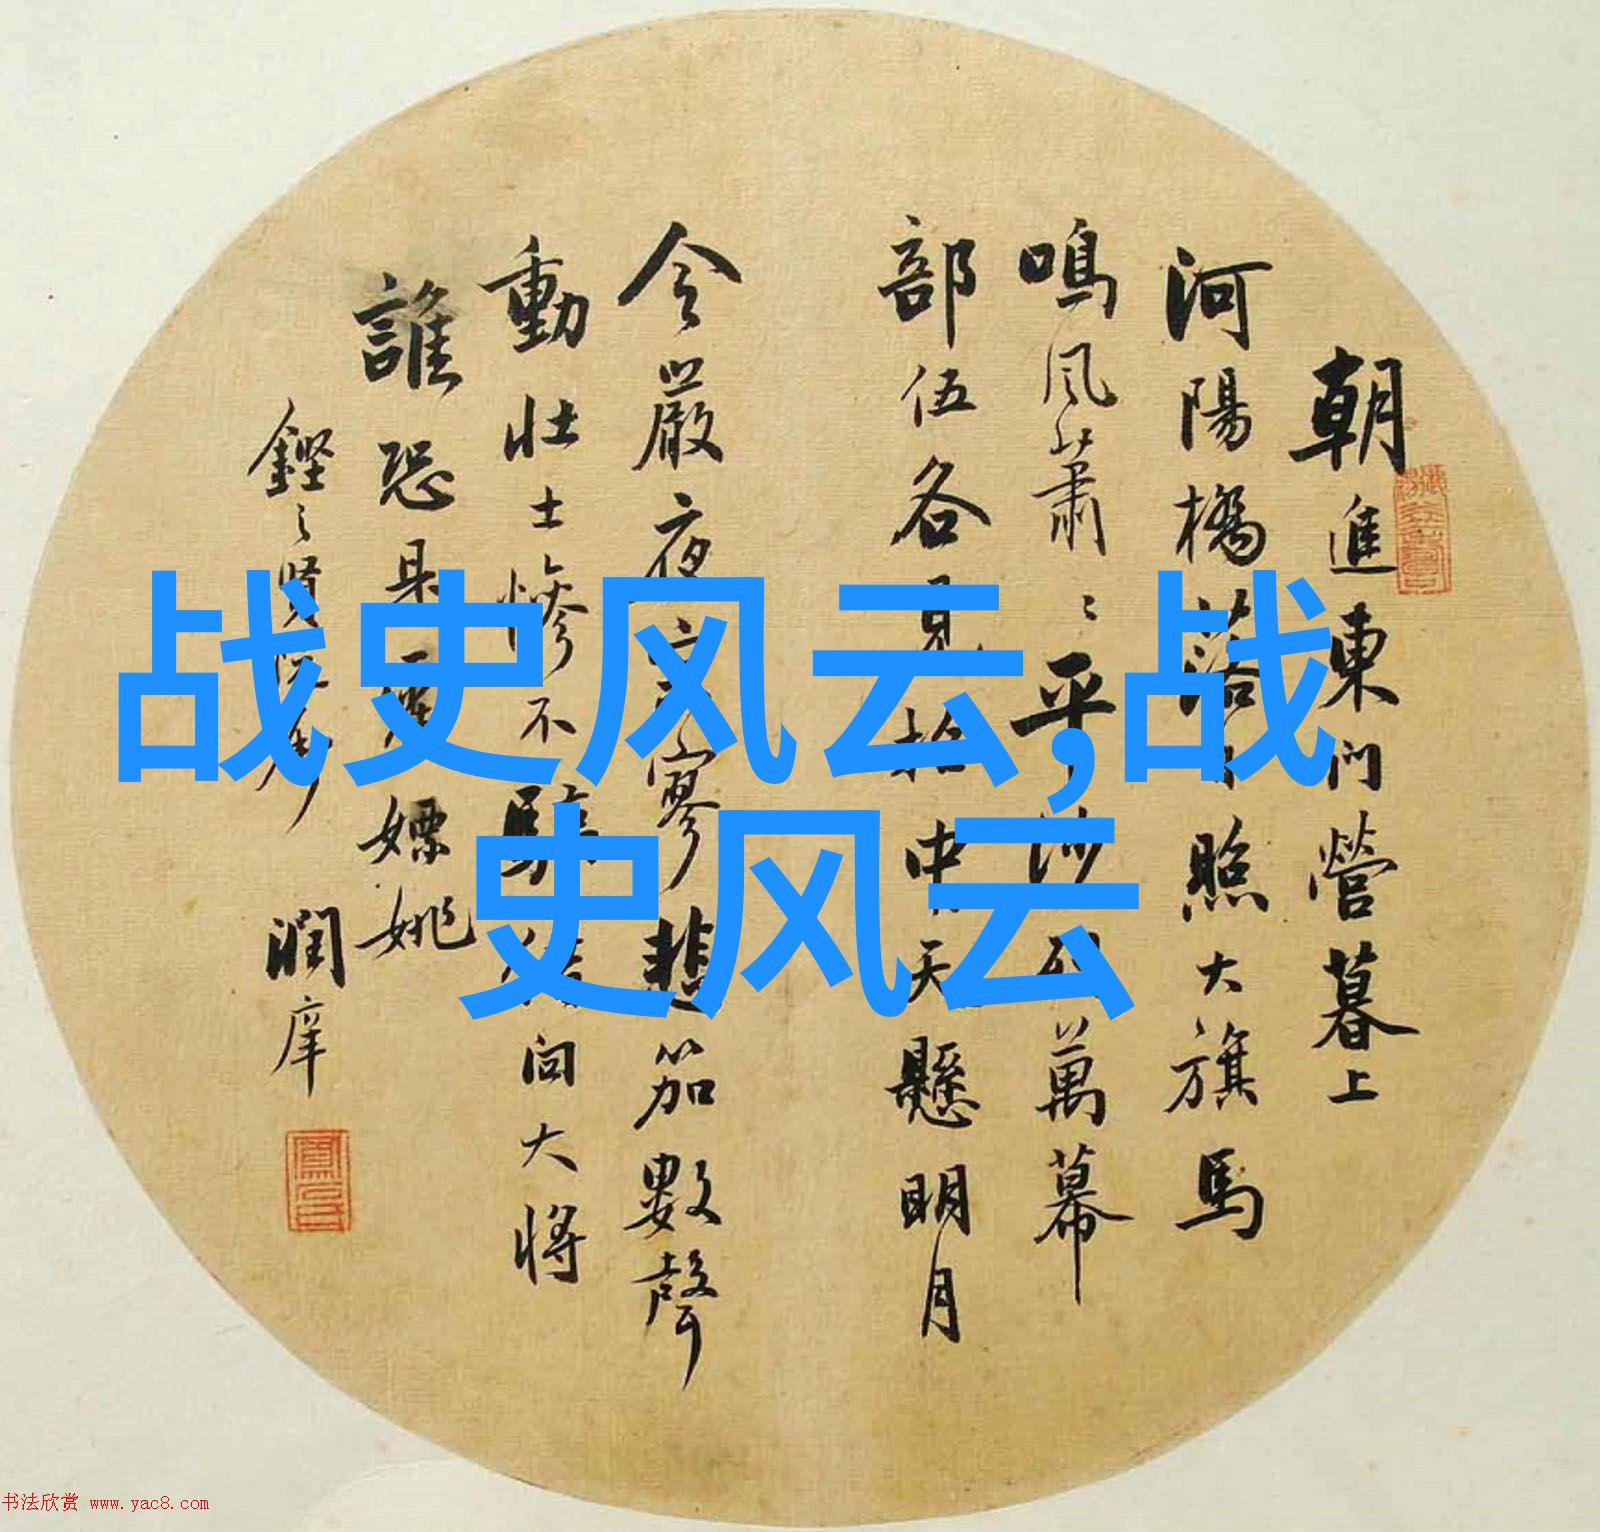 战史风云,战
史风云
朝進東門營暮上
河陽橋落照大旗馬
鳴風蕭〻平沙萬幕
部伍各見招中天懸明月
令嚴夜寥悲笳數聲
動壯士慘不驕問大將
誰恐是嫖姚
潤庠
书法欣赏 www.yac8.com